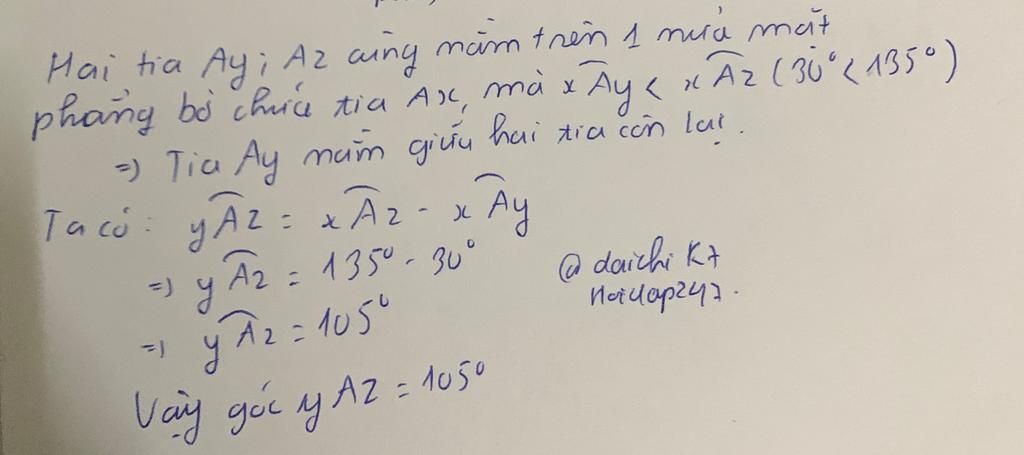 Hai tia Ay; Az cùng nằm trên 1 nửa mặt
phẳng bờ chứa tia Ax, mà xAy < xAz (30° < 135°)
=) Tia Ay nằm giữa hai tia còn lại.
Ta có: yAz = xAz - xAy
=) yAz = 135° - 30°
=) yAz = 105°
Vậy góc yAz = 105°
@daichi K7
Hoidap247.